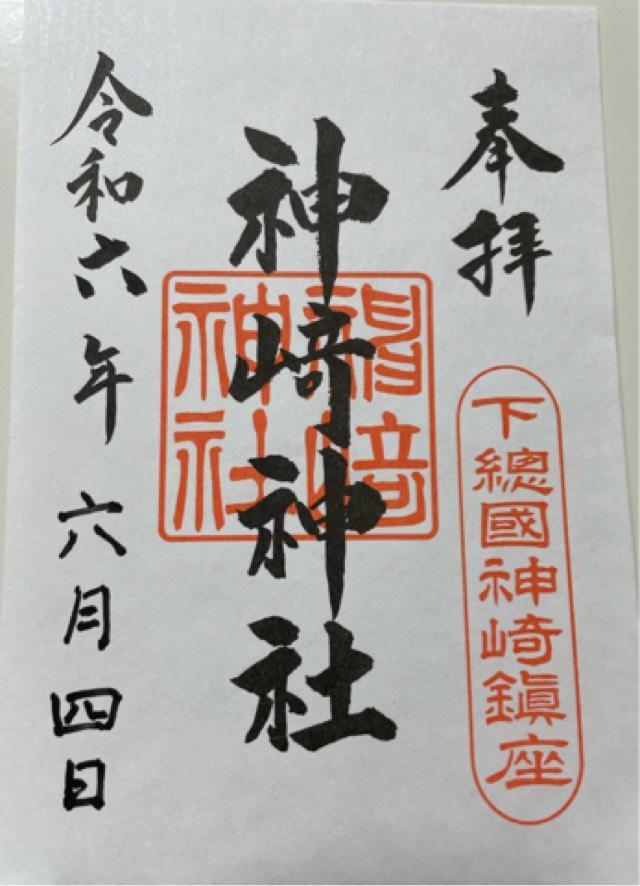 奉拝
下總國神崎鎭座
神﨑神社
神﨑神社
令和六年六月四日